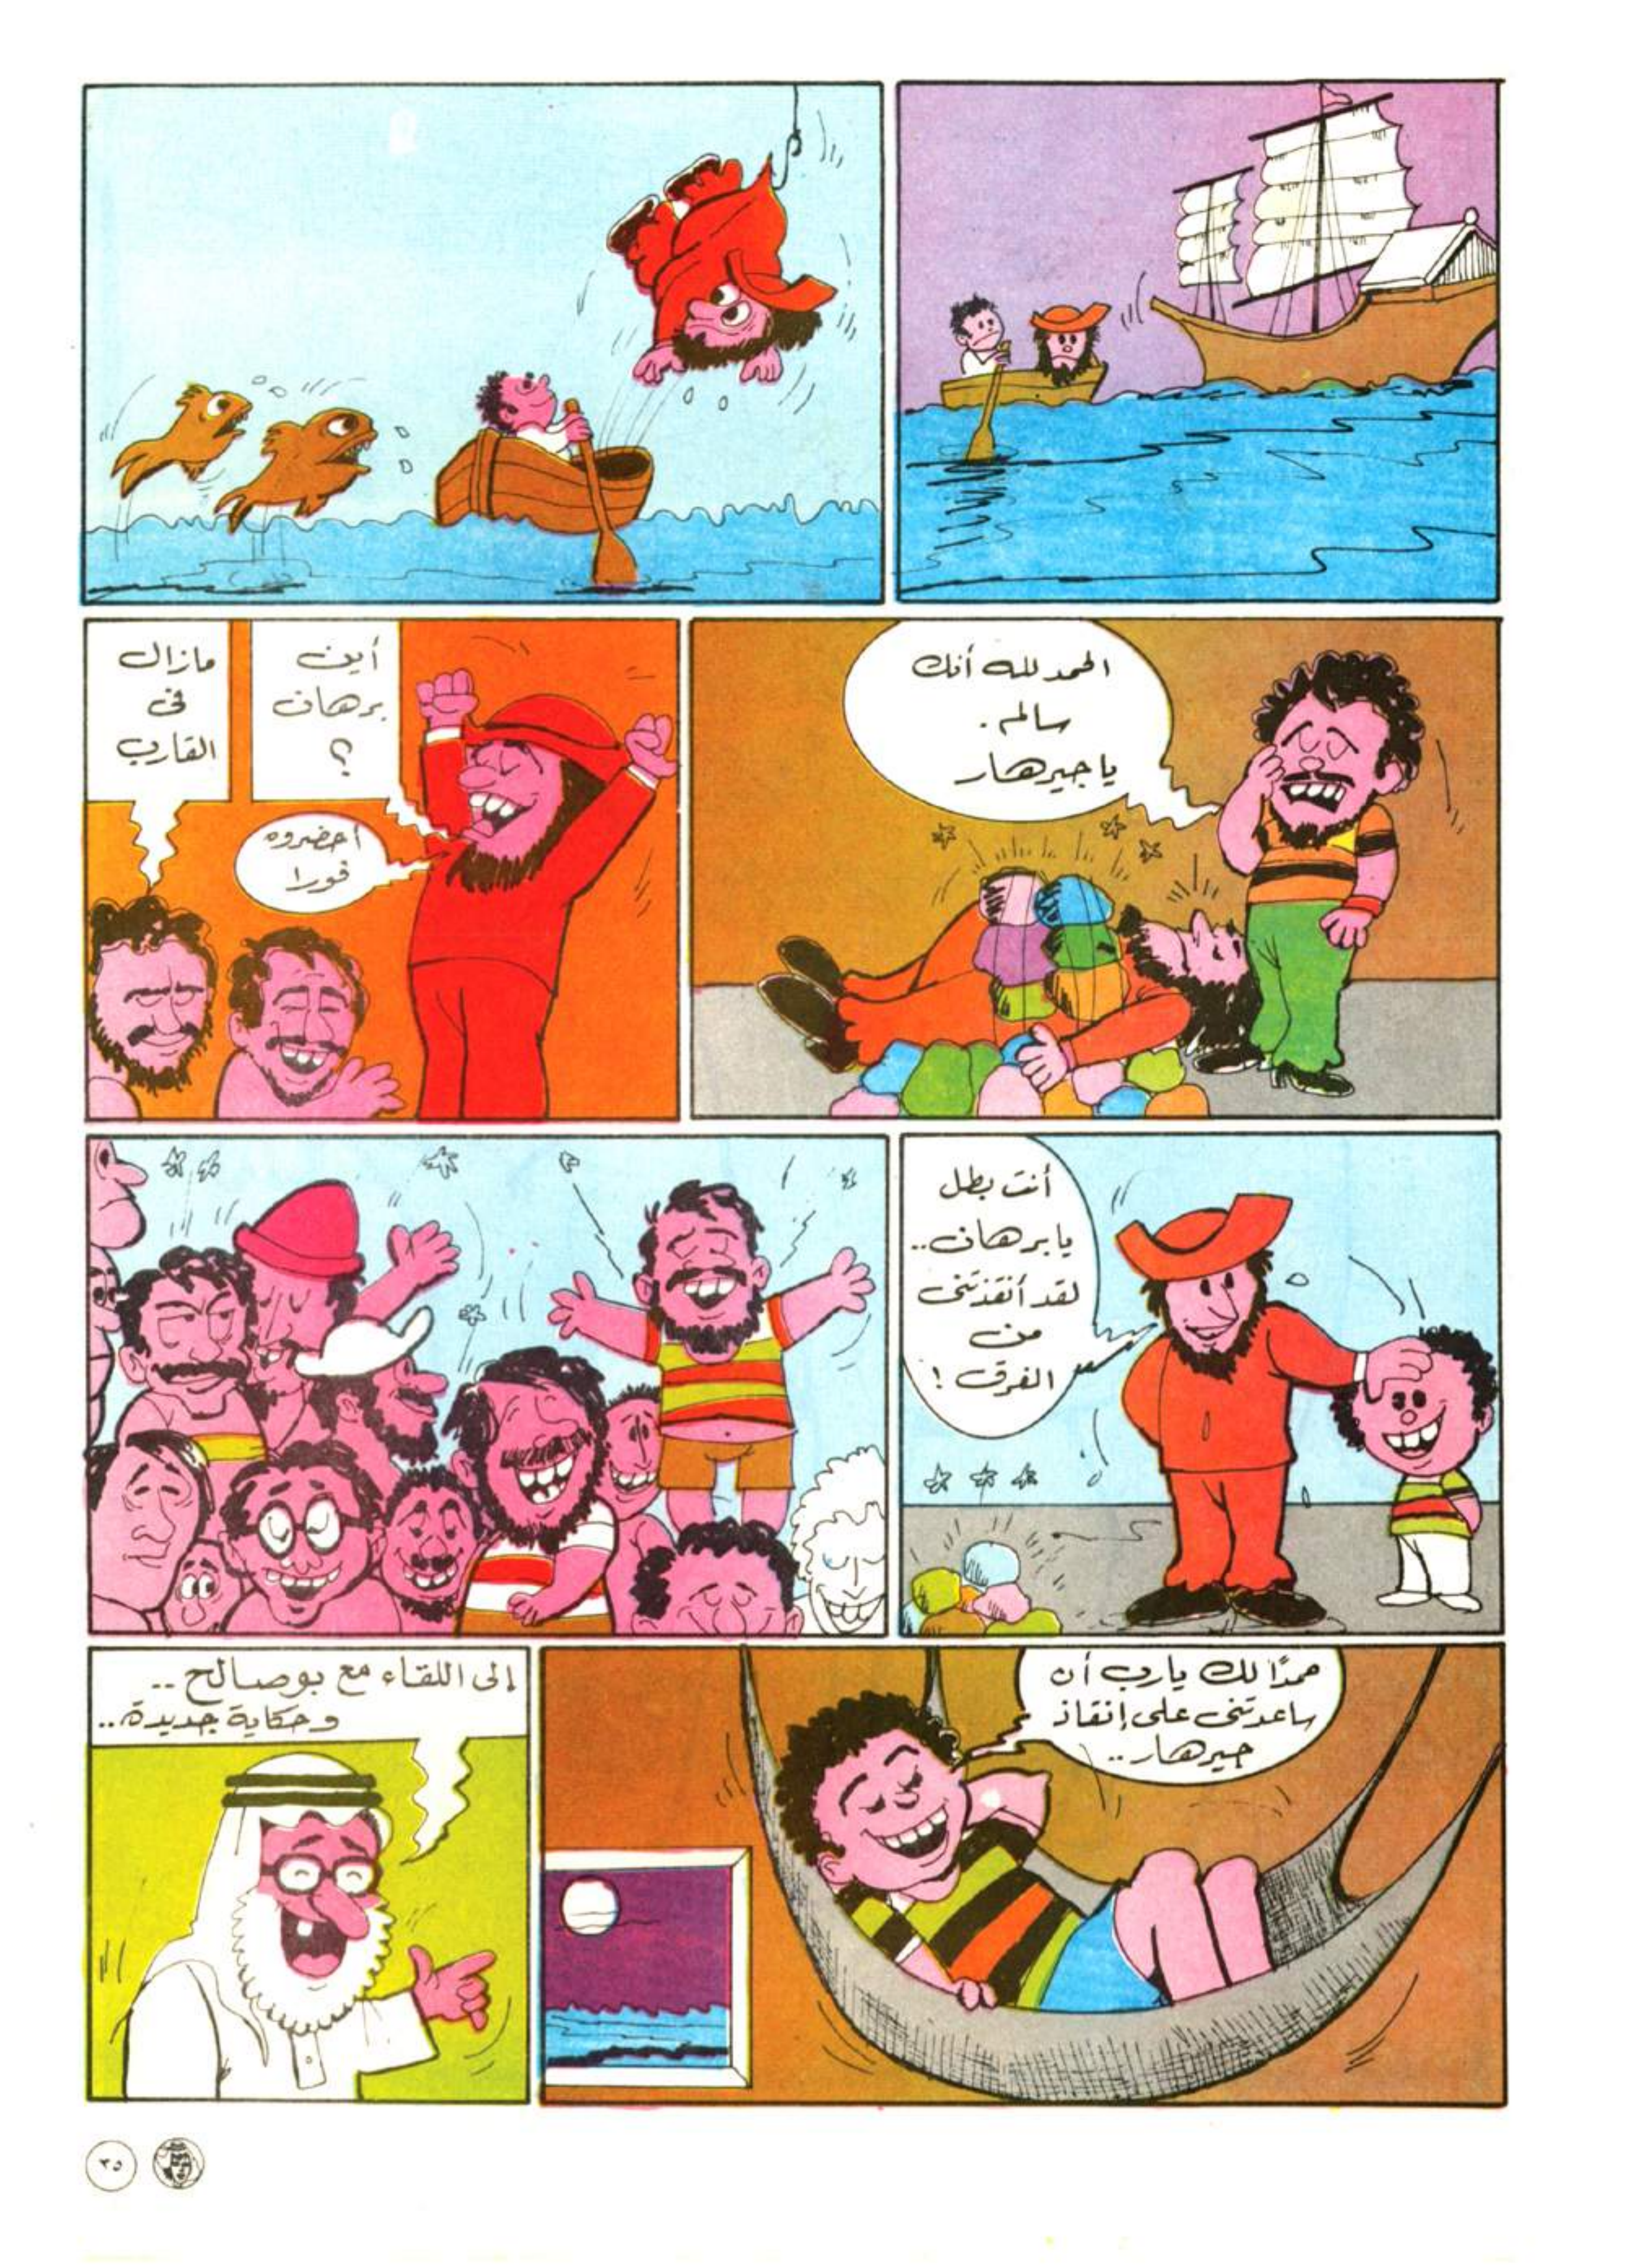 الحمد لله أنك
سالم .
يا جيرهار
أين
برهان
؟
أحضروه
فورا
مازال
فى
القارب
أنت بطل
يا برهان ..
لقد أنقذتنى
من
الغرق !
حمدًا لك يارب أن
ساعدتنى على إنقاذ
جيرهار ..
إلى اللقاء مع بوصالح ..
وحكاية جديدة ..
٢٥